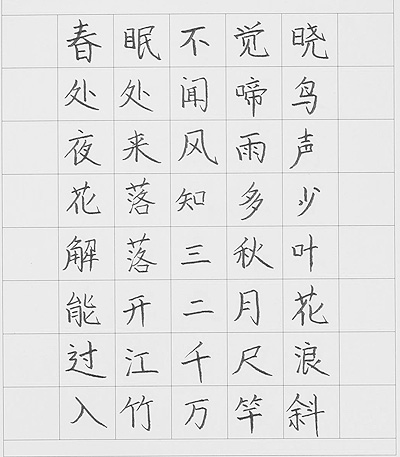 春眠不觉晓
处处闻啼鸟
夜来风雨声
花落知多少
解落三秋叶
能开二月花
过江千尺浪
入竹万竿斜